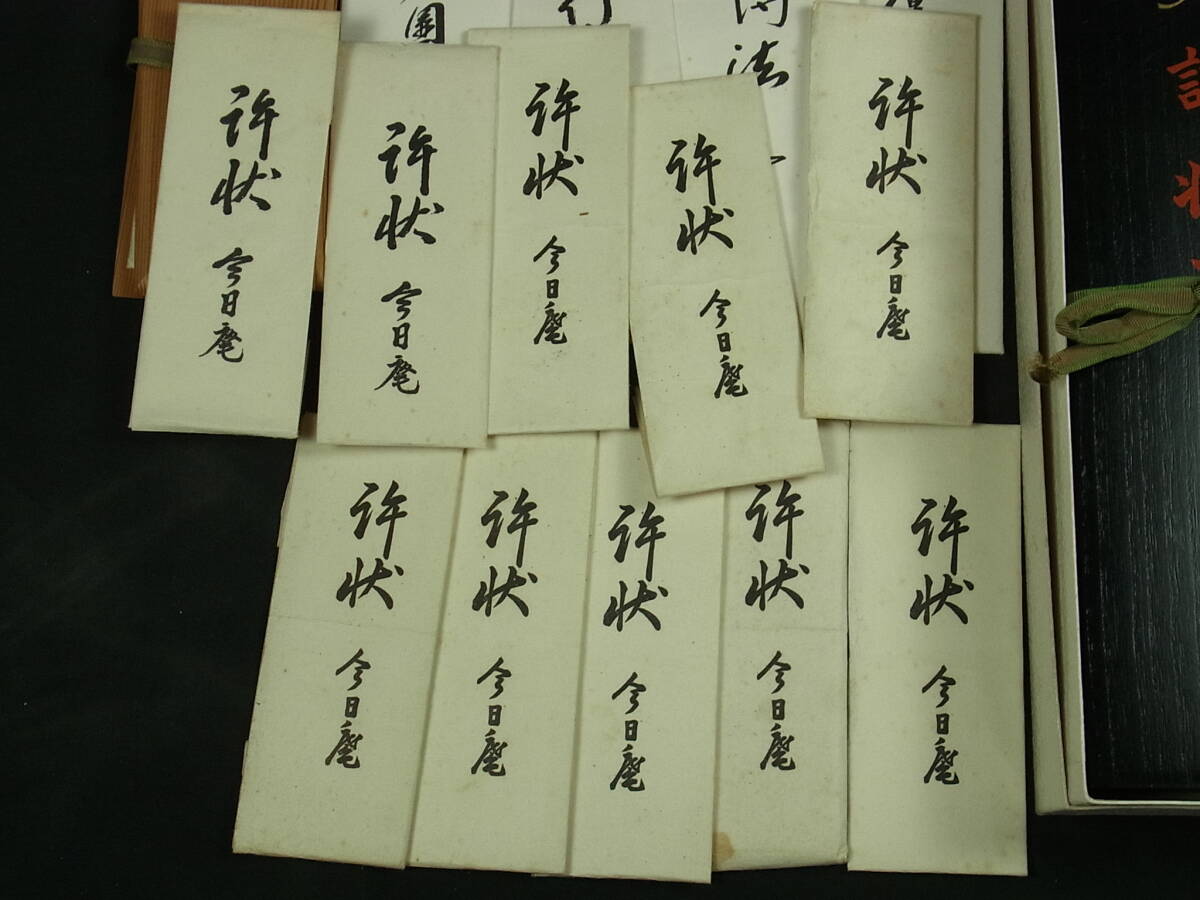 許状 今日庵
許状 今日庵
許状 今日庵
許状 今日庵
許状 今日庵
許状 今日庵
許状 今日庵
許状 今日庵
許状 今日庵
許状 今日庵
許状